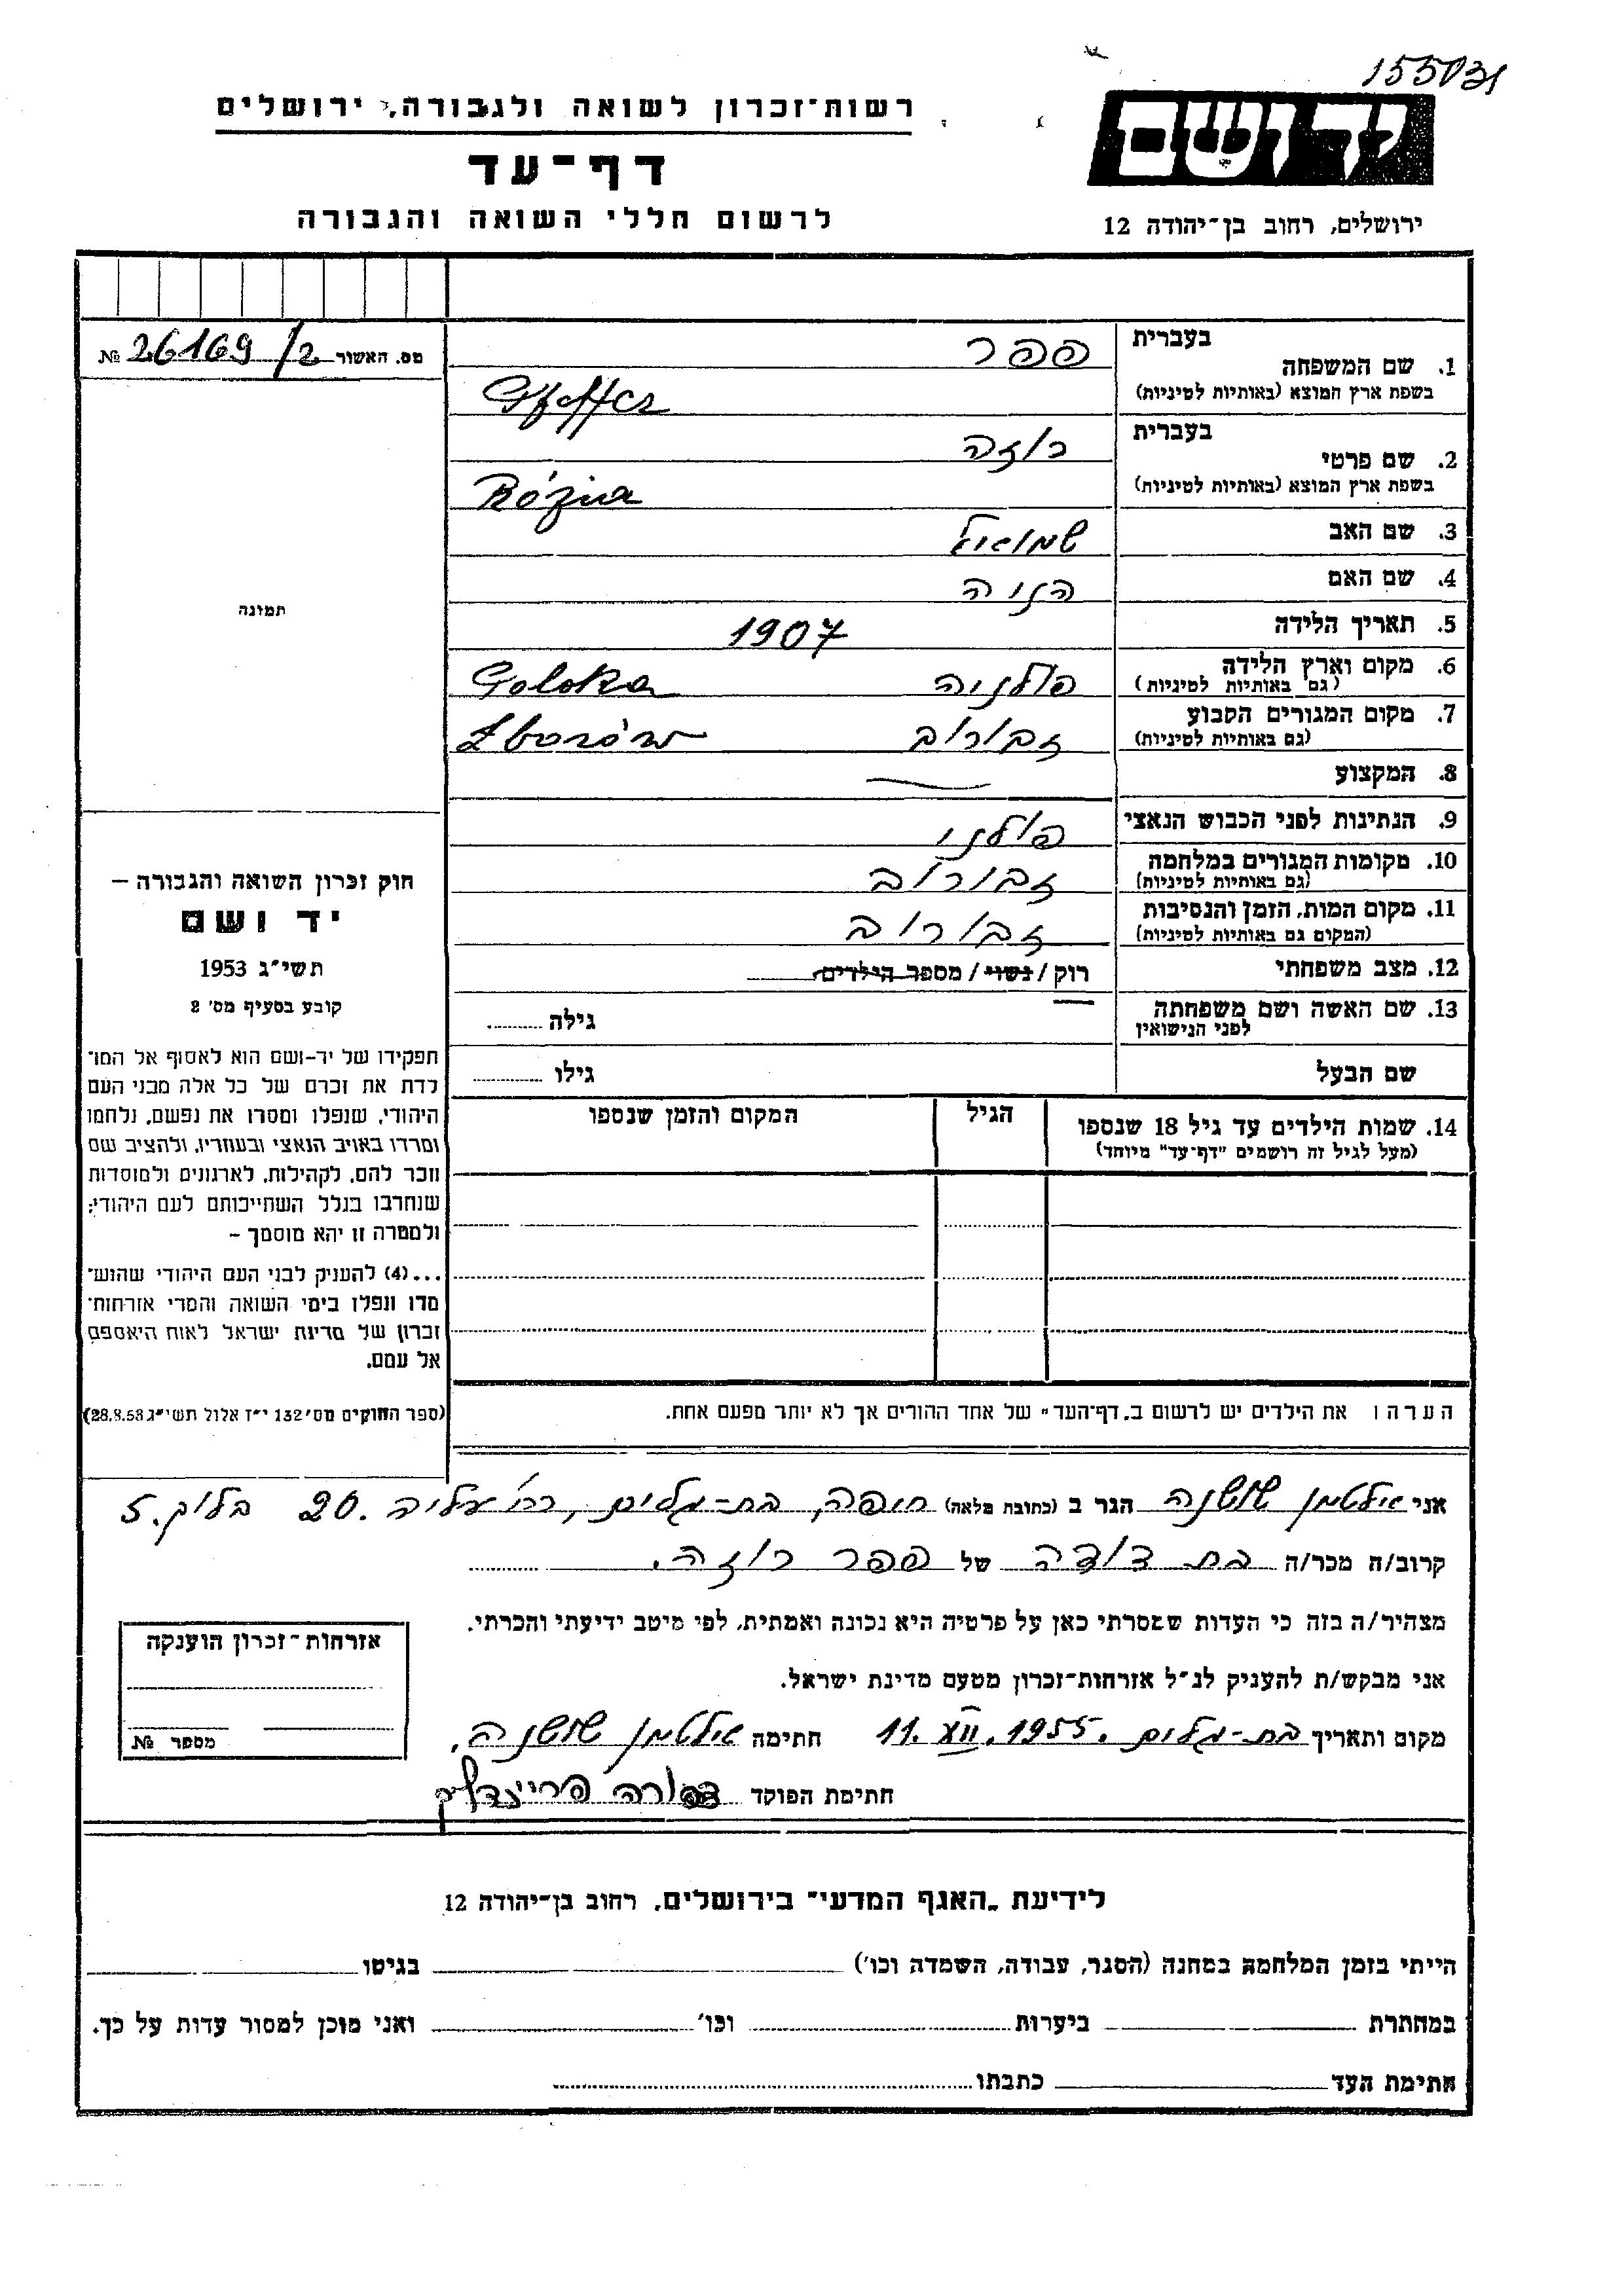 155031
רשות-זכרון לשואה ולגבורה, ירושלים
יד ושם
דף-עד
לרשום חללי השואה והגבורה
ירושלים, רחוב בן-יהודה 12
מס. האשור № 26169/2
בעברית
1. שם המשפחה
פפר
בשפת ארץ המוצא (באותיות לטיניות)
Pfeffer
בעברית
2. שם פרטי
רוזה
בשפת ארץ המוצא (באותיות לטיניות)
Rózia
3. שם האב שמואל
4. שם האם הניה
5. תאריך הלידה 1907
6. מקום וארץ הלידה פולניה Polska
(גם באותיות לטיניות)
7. מקום המגורים הקבוע זבורוב Zborów
(גם באותיות לטיניות)
8. המקצוע
9. הנתינות לפני הכבוש הנאצי פולני
10. מקומות המגורים במלחמה זבורוב
(גם באותיות לטיניות)
11. מקום המות, הזמן והנסיבות זבורוב
(המקום גם באותיות לטיניות)
12. מצב משפחתי רוק / נשוי / מספר הילדים
13. שם האשה ושם משפחתה גילה
לפני הנישואין
שם הבעל גילו
14. שמות הילדים עד גיל 18 שנספו הגיל המקום והזמן שנספו
(מעל לגיל זה רושמים "דף-עד" מיוחד)
הערה: את הילדים יש לרשום ב"דף-העד" של אחד ההורים אך לא יותר מפעם אחת.
תמונה
חוק זכרון השואה והגבורה –
יד ושם
תשי"ג 1953
קובע בסעיף מס' 2
תפקידו של יד-ושם הוא לאסוף אל המו־
לדת את זכרם של כל אלה מבני העם
היהודי, שנפלו ומסרו את נפשם, נלחמו
ומרדו באויב הנאצי ובעוזריו, ולהציב שם
וזכר להם, לקהילות, לארגונים ולמוסדות
שנחרבו בגלל השתייכותם לעם היהודי;
ולמטרה זו יהא מוסמך –
...(4) להעניק לבני העם היהודי שהוש־
מדו ונפלו בימי השואה והמרי אזרחות־
זכרון של מדינת ישראל לאות היאספם
אל עמם.
(ספר החוקים מס' 132 י"ז אלול תשי"ג 28.8.53)
אני אילטמן שושנה הגר ב (כתובת מלאה) חיפה, בת-גלים, רח' עליה. 20 בלוק. 5
קרוב/ה מכר/ה בת דודה של פפר רוזה.
מצהיר/ה בזה כי העדות שמסרתי כאן על פרטיה היא נכונה ואמתית, לפי מיטב ידיעתי והכרתי.
אני מבקש/ת להעניק לנ"ל אזרחות-זכרון מטעם מדינת ישראל.
מקום ותאריך בת-גלים. 11. XII. 1955 חתימה אילטמן שושנה.
חתימת הפוקד
אזרחות-זכרון הוענקה
מספר №
לידיעת "האגף המדעי" בירושלים, רחוב בן-יהודה 12
הייתי בזמן המלחמה במחנה (הסגר, עבודה, השמדה וכו') בגיטו
במחתרת ביערות וכו' ואני מוכן למסור עדות על כך.
חתימת העד כתבתו